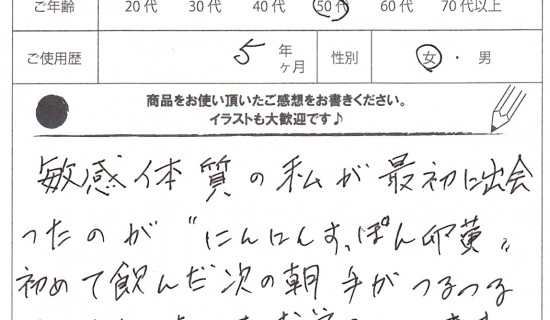 ご年齢 20代 30代 40代 50代 60代 70代以上
ご使用歴 5年 ヶ月 性別 女・男
商品をお使い頂いたご感想をお書きください。
イラストも大歓迎です♪
敏感体質の私が最初に出会
ったのが〝にんにんすっぽん卵黄〟
初めて飲んだ次の朝 手がつるつる